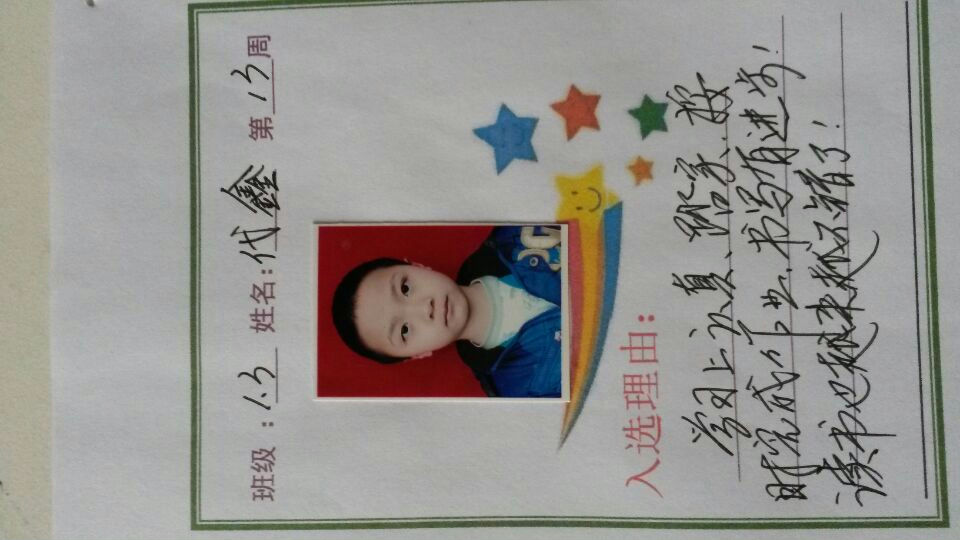 班级：1.3 姓名：代鑫 第13周
入选理由：
学习上认真、踏实、按
时完成作业、书写有进步！
读书也越来越不错了！